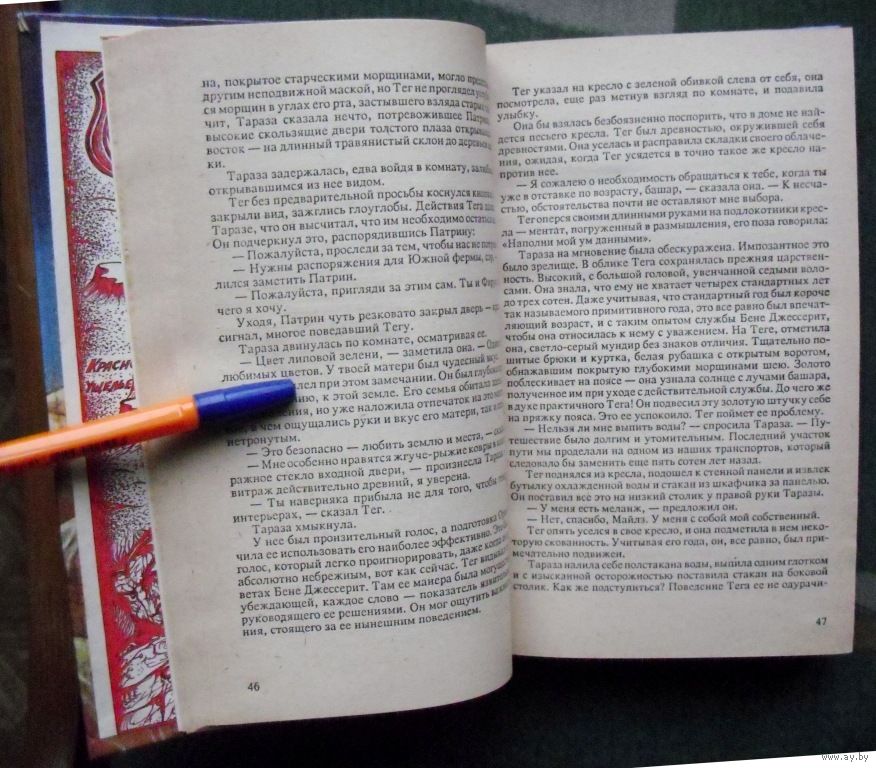 на, покрытое старческими морщинами, могло
другим неподвижной маской, но Тег не проглядел
ся морщин в углах его рта, застывшего взгляда
чит, Тараза сказала нечто, потревожившее
высокие скользящие двери толстого плаза
восток — на длинный травянистый склон до
ки.
Тараза задержалась, едва войдя в комнату,
открывавшимся из нее видом.
Тег без предварительной просьбы коснулся
закрыли вид, зажглись глоуглобы. Действия Тега
Таразе, что он высчитал, что им необходимо
Он подчеркнул это, распорядившись Патрину:
— Пожалуйста, проследи за тем, чтобы нас не
— Нужны распоряжения для Южной фермы,
лился заметить Патрин.
— Пожалуйста, пригляди за этим сам. Ты и
чего я хочу.
Уходя, Патрин чуть резковато закрыл дверь —
сигнал, многое поведавший Тегу.
Тараза двинулась по комнате, осматривая ее.
— Цвет липовой зелени, — заметила она. —
любимых цветов. У твоей матери был чудесный
при этом замечании. Он был
к этой земле. Его семья обитала
но уже наложила отпечаток на это
в чем ощущались руки и вкус его матери, так и
нетронутым.
— Это безопасно — любить землю и места, —
— Мне особенно нравятся жгуче-рыжие ковры в
ражное стекло входной двери, — произнесла Тараза
витраж действительно древний, я уверена.
— Ты наверняка прибыла не для того, чтобы
интерьерах, — сказал Тег.
Тараза хмыкнула.
У нее был пронзительный голос, а подготовка
чила ее использовать его наиболее эффективно.
голос, который легко проигнорировать, даже когда
абсолютно небрежным, вот как сейчас. Тег видывал
ветах Бене Джессерит. Там ее манера была
убеждающей, каждое слово — показатель
руководящего ее решениями. Он мог ощутить
ния, стоящего за ее нынешним поведением.
46
Тег указал на кресло с зеленой обивкой слева от себя, она
посмотрела, еще раз метнув взгляд по комнате, и подавила
улыбку.
Она бы взялась безбоязненно поспорить, что в доме не най-
дется песьего кресла. Тег был древностью, окружившей себя
древностями. Она уселась и расправила складки своего облаче-
ния, ожидая, когда Тег усядется в точно такое же кресло на-
против нее.
— Я сожалею о необходимость обращаться к тебе, когда ты
уже в отставке по возрасту, башар, — сказала она. — К несча-
стью, обстоятельства почти не оставляют мне выбора.
Тег оперся своими длинными руками на подлокотники крес-
ла — ментат, погруженный в размышления, его поза говорила:
«Наполни мой ум данными».
Тараза на мгновение была обескуражена. Импозантное это
было зрелище. В облике Тега сохранялась прежняя царствен-
ность. Высокий, с большой головой, увенчанной седыми воло-
сами. Она знала, что ему не хватает четырех стандартных лет
до трех сотен. Даже учитывая, что стандартный год был короче
так называемого примитивного года, это все равно был впечат-
ляющий возраст, и с таким опытом службы Бене Джессерит,
чтобы она относилась к нему с уважением. На Теге, отметила
она, светло-серый мундир без знаков отличия. Тщательно по-
шитые брюки и куртка, белая рубашка с открытым воротом,
обнажавшим покрытую глубокими морщинами шею. Золото
поблескивает на поясе — она узнала солнце с лучами башара,
полученное им при уходе с действительной службы. До чего же
в духе практичного Тега! Он подвесил эту золотую штучку себе
на пряжку пояса. Это ее успокоило. Тег поймет ее проблему.
— Нельзя ли мне выпить воды? — спросила Тараза. — Пу-
тешествие было долгим и утомительным. Последний участок
пути мы проделали на одном из наших транспортов, который
следовало бы заменить еще пять сотен лет назад.
Тег поднялся из кресла, подошел к стенной панели и извлек
бутылку охлажденной воды и стакан из шкафчика за панелью.
Он поставил все это на низкий столик у правой руки Таразы.
— У меня есть меланж, — предложил он.
— Нет, спасибо, Майлз. У меня с собой мой собственный.
Тег опять уселся в свое кресло, и она подметила в нем неко-
торую скованность. Учитывая его года, он, все равно, был при-
мечательно подвижен.
Тараза налила себе полстакана воды, выпила одним глотком
и с изысканной осторожностью поставила стакан на боковой
столик. Как же подступиться? Поведение Тега ее не одурачи-
47
www.ay.by